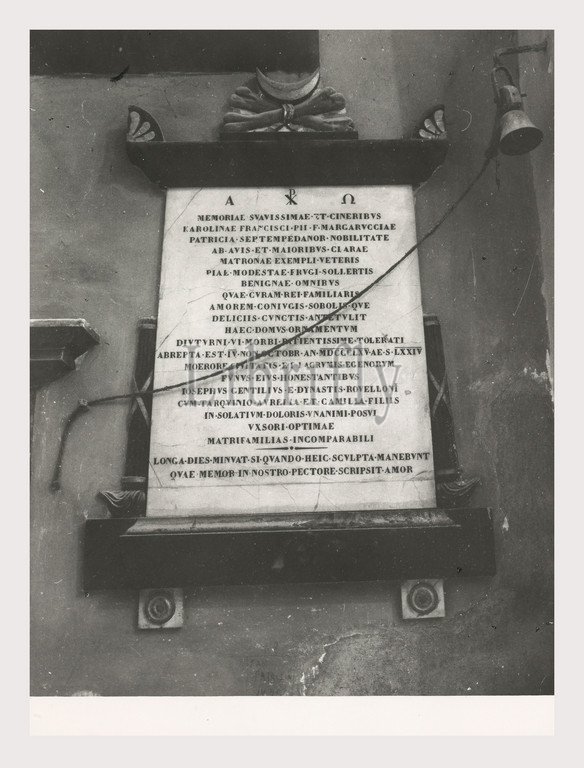 A ☧ Ω
MEMORIAE · SVAVISSIMAE · ET · CINERIBVS
KAROLINAE · FRANCISCI · PII · F · MARGARVCCIAE
PATRICIA · SEPTEMPEDANOR · NOBILITATE
AB · AVIS · ET · MAIORIBVS · CLARAE
MATRONAE · EXEMPLI · VETERIS
PIAE · MODESTAE · FRVGI · SOLLERTIS
BENIGNAE · OMNIBVS
QVAE · CVRAM · REI · FAMILIARIS
AMOREM · CONIVGIS · SOBOLIS · QVE
DELICIIS · CVNCTIS · ANTETVLIT
HAEC · DOMVS · ORNAMENTVM
DIVTVRNI · VI · MORBI · PATIENTISSIME · TOLERATI
ABREPTA · EST · IV · NON · OCTOBR · AN · AE · S · LXXIV
MOERORE · ET · LACRVMIS · EGENORVM
FVNVS · EIVS · HONESTANTIBVS
IOSEPHVS · GENTILIVS · E · DYNASTIS · ROVELLONI
CVM · TARQVINIO · AVRELIA · ET · CAMILLA · FILIIS
IN · SOLATIVM · DOLORIS · VNANIMI · POSVI
VXSORI · OPTIMAE
MATRIFAMILIAS · INCOMPARABILI
LONGA · DIES · MINVAT · SI · QVANDO · HEIC · SCVLPTA · MANEBVNT
QVAE · MEMOR · IN · NOSTRO · PECTORE · SCRIPSIT · AMOR